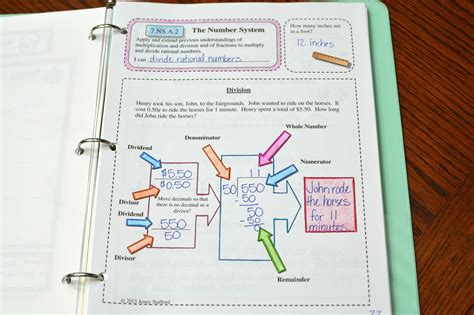 7.NS.A.2 The Number System
Apply and extend previous understandings of
multiplication and division and of fractions to multiply
and divide rational numbers.
I can divide rational numbers
How many inches are
in a foot?
12 inches
Division
Henry took his son, John, to the fairgrounds. John wanted to ride on the horses. It
cost 0.50¢ to ride the horses for 1 minute. Henry spent a total of $5.50. How long
did John ride the horses?
Whole Number
Denominator
Dividend
Numerator
$5.50
$0.50
Divisor
Move decimals so that
there is no decimal as a
divisor!
Dividend
550
50
Divisor
11
50 550
-50
50
-50
0
Remainder
John rode
the horses
for 11
minutes.
© 2013 Jenny